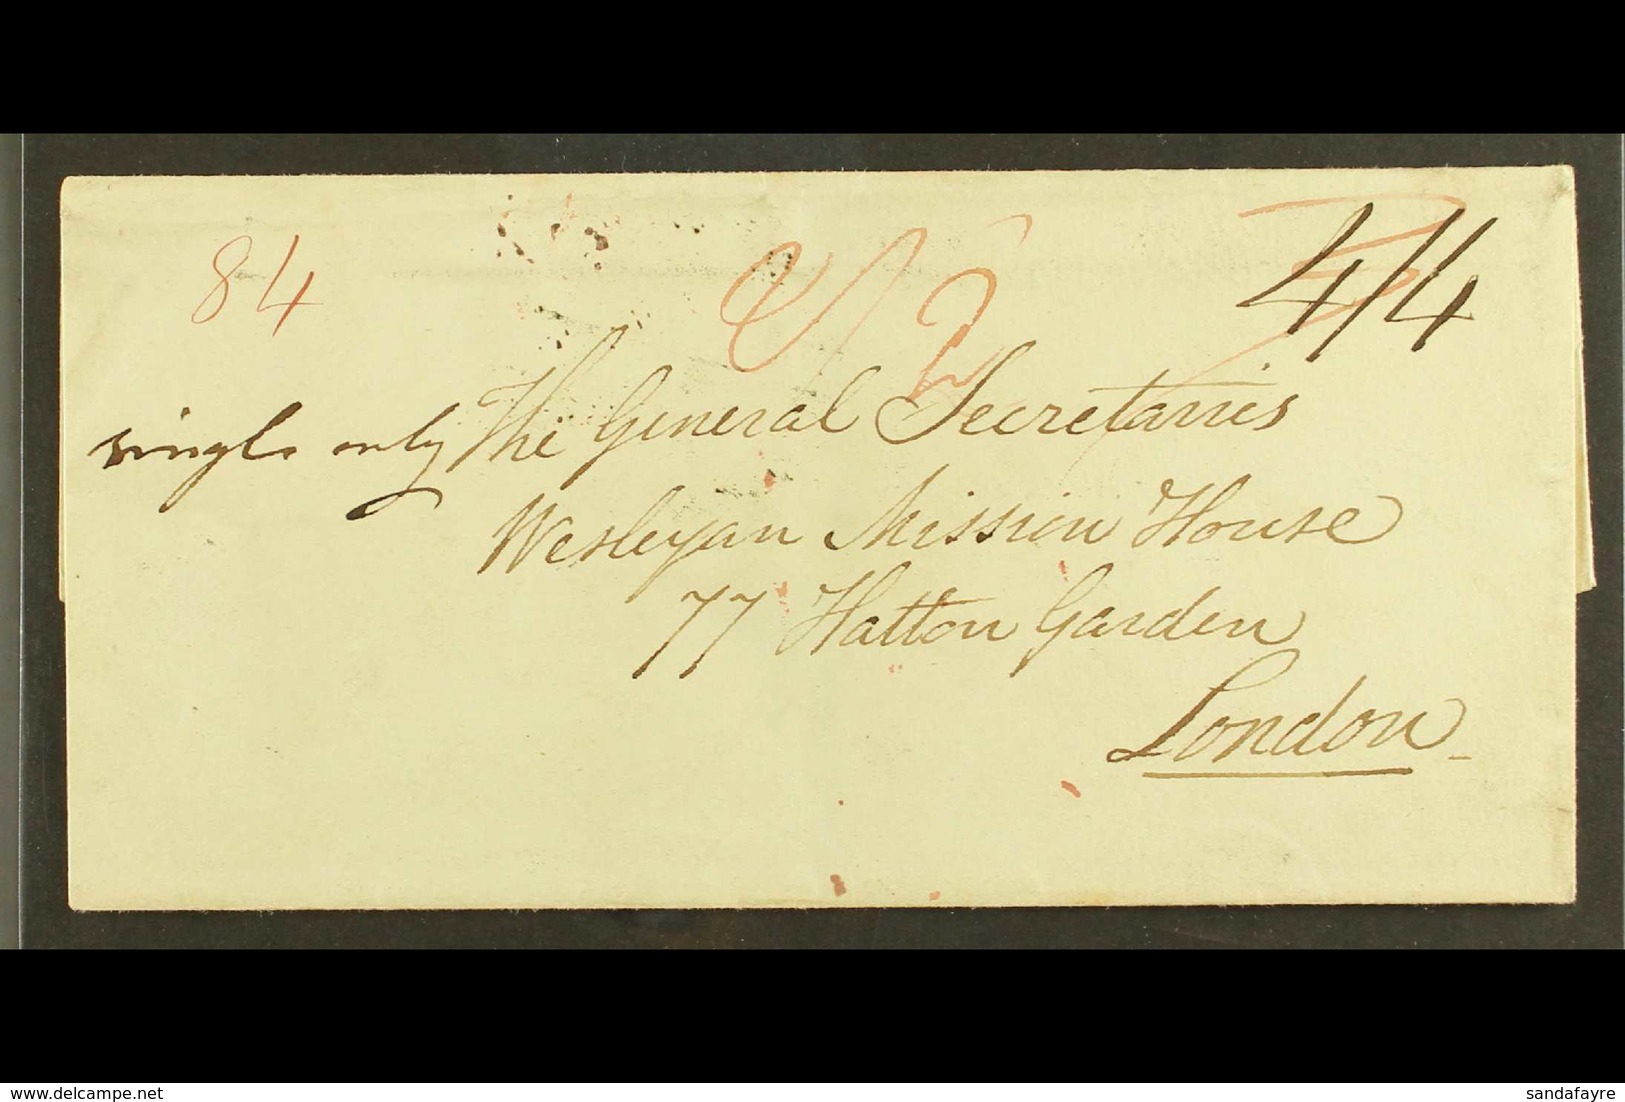 84
4/4
single only
The General Secretaries
Wesleyan Mission House
77 Hatton Garden
London
© for delcampe.net
sandafayre